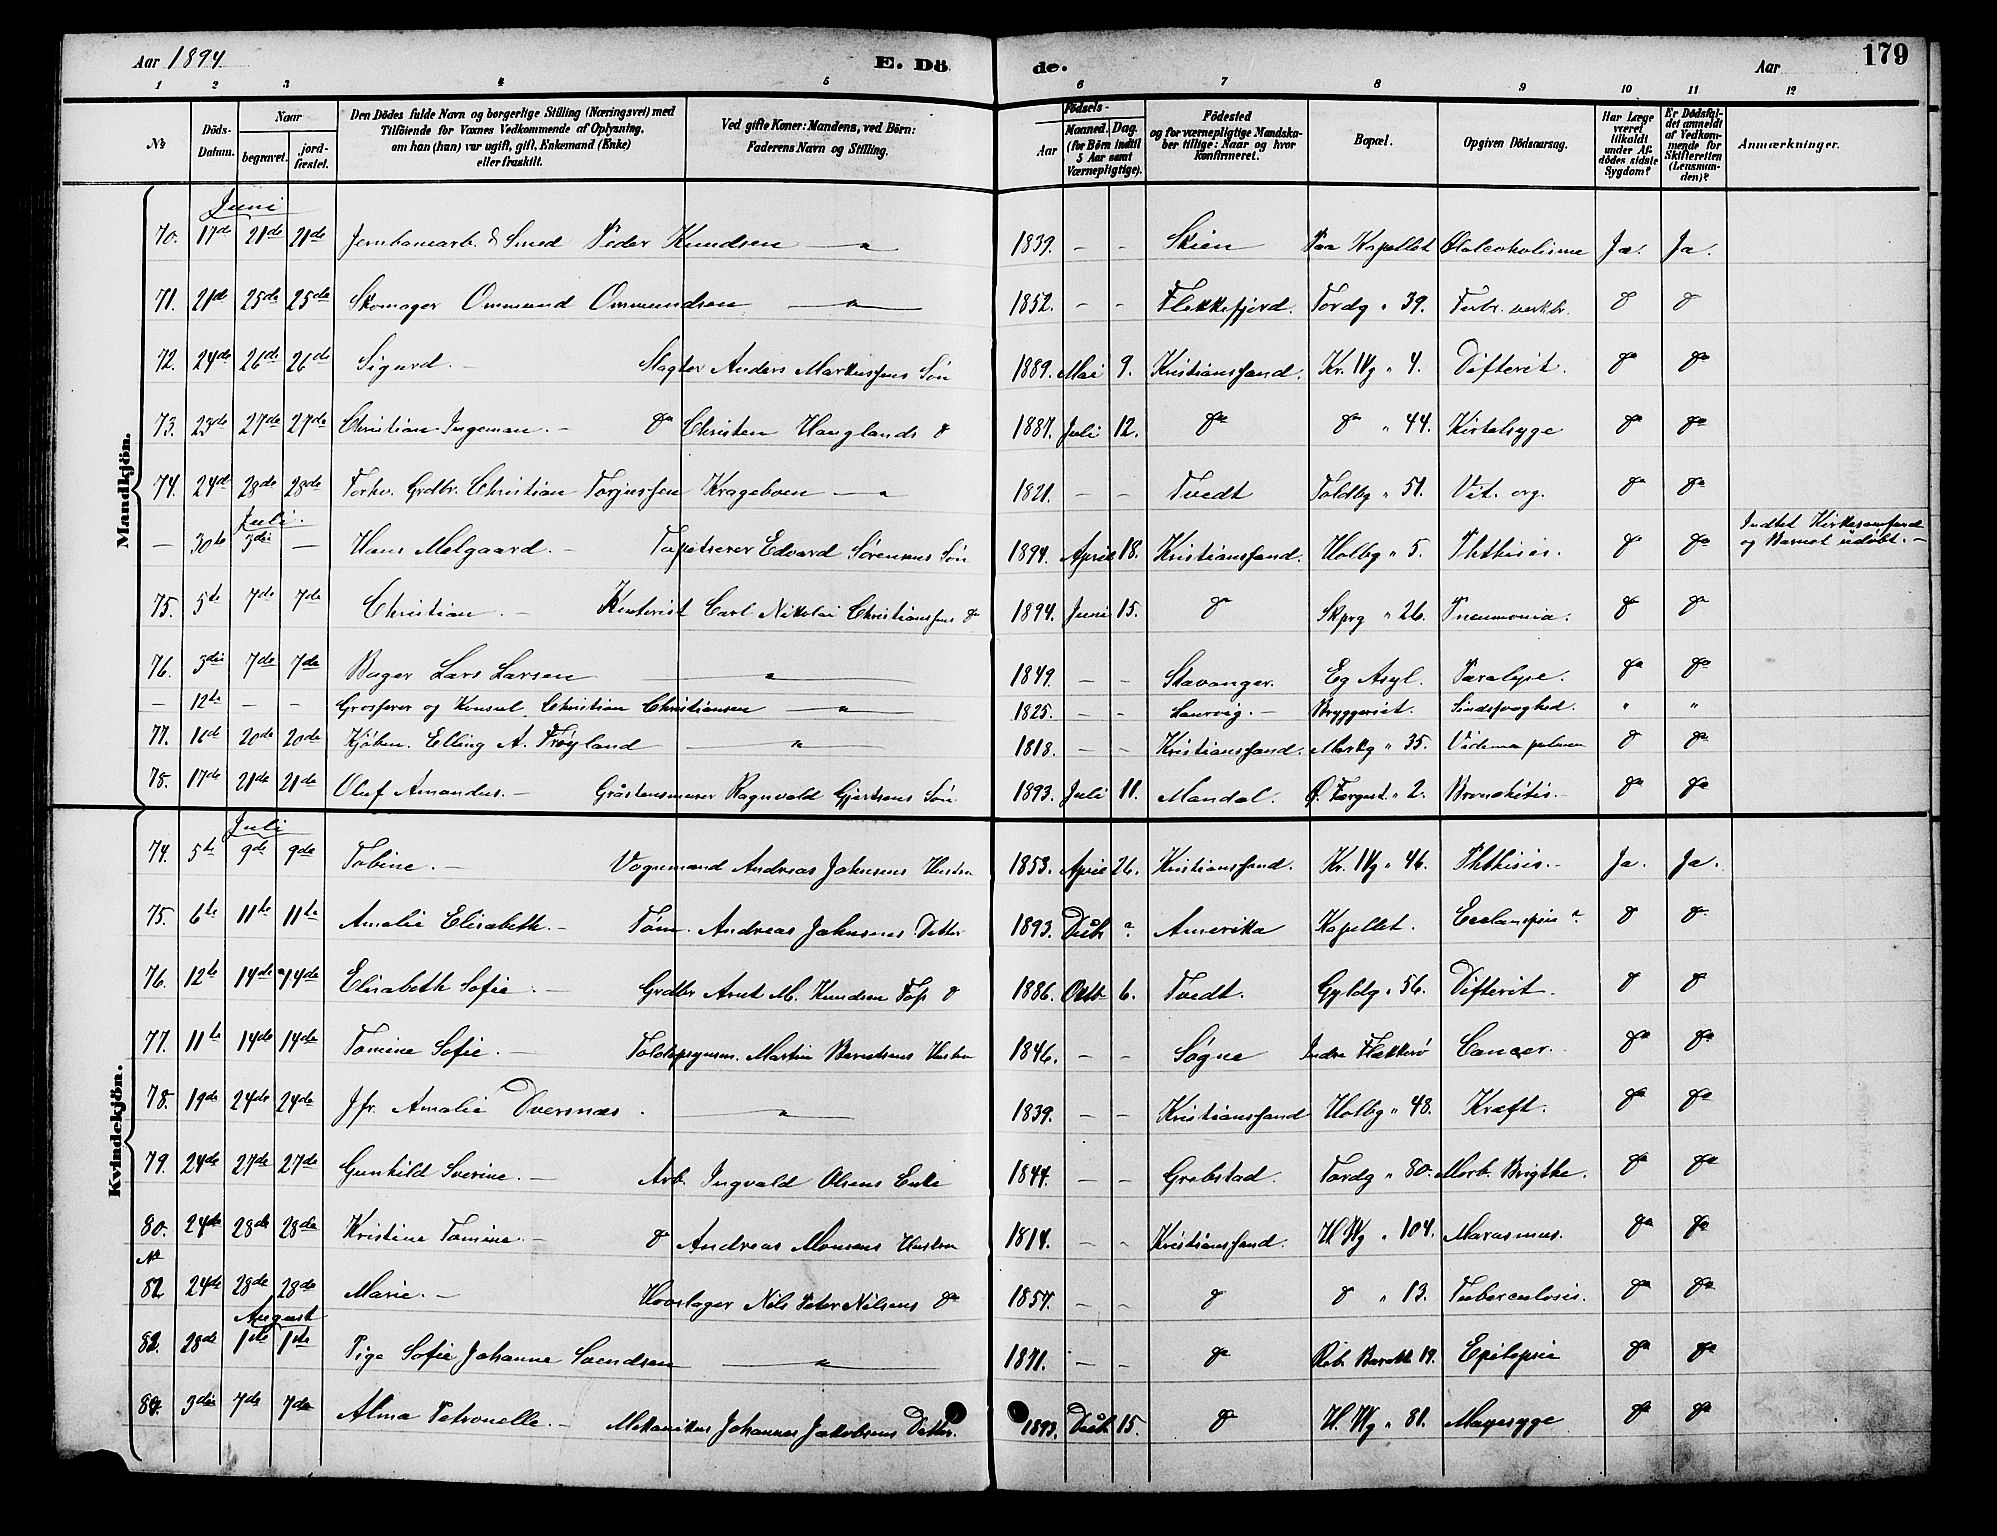 Aar 1894
E. Dö
de.
Aar
179
1 2 3 4 5 6 7 8 9 10 11 12
No
Döds-Datum.
Naar
begravet.
jord-fæstet.
Den Dödes fulde Navn og borgerlige Stilling (Næringsvei) med
Tilföiende for Voxnes Vedkommende af Oplysning,
om han (hun) var ugift, gift, Enkemand (Enke)
eller fraskilt.
Ved gifte Koner: Mandens, ved Börn:
Faderens Navn og Stilling.
Födsels-
Aar
Maaned. Dag.
(for Börn indtil
5 Aar samt
Værnepligtige).
Födested
og for værnepligtige Mandska-
ber tillige: Naar og hvor
konfirmeret.
Bopæl.
Opgiven Dödsaarsag.
Har Læge
været
tilkaldt
under Af-
dödes sidste
Sygdom?
Er Dödsfal-
det anmeldt
af Vedkom-
mende for
Skifteretten
(Lensman-
den)?
Anmærkninger.
Mandkjön.
Juni
70. 17de 21de 21de Jernbanearb. & Smed Peder Knudsen — " 1839. – – Skien Paa Kapellet Alcoholisme Ja. Ja.
71. 21de 25de 25de Skomager Ommund Ommundsen — " 1852. – – Flekkefjord. Tordg " 39. do do
72. 24de 26de 26de Sigurd. – Slagter Anders Markussens Søn 1889. Mai 9. Kristianssand. Kr. IVg " 4. Difterit. do do
73. 23de 27de 27de Christian Ingeman. – do Christen Hauglands do 1887. Juli 12. do do " 44. Kirtelsyge do do
74. 24de 28de 28de Forhv. Grdbr. Christian Torjussen Krageboen — " 1821. – – Tvedt Toldbg " 51. Vit. org. do do
Juli.
– 30te 3die – Hans Mølgaard. – Tapetserer Edvard Sørensens Søn 1894. April 18. Kristianssand. Holbg " 5. Phthisis. do do Indtet Kirkesamfund
og Barnet udøbt. –
75. 5te 7de 7de Christian. – Kontorist Carl Nikolai Christianssens do 1894. Juni 15. do Skprg " 26. Pneumonia. do do
76. 3die 7de 7de Bager Lars Larsen " 1849. – – Stavanger. Eg Asyl. Paralyse. do do
– 12te – – Grosserer og Konsul Christian Christiansen — " 1825. – – Laurvig. – Bryggeriet. Sindssvaghed. " "
77. 16de 20de 20de Kjøbm. Elling A. Frøyland " 1818. – – Kristianssand. Markg " 35. do do
78. 17de 21de 21de Oluf Amandus. – Gråstensmurer Ragnvald Gjertsens Søn 1893. Juli 11. Mandal. Bronchitis. do do
Kvindekjön.
Juli
74. 5te 9de 9de Tobine. – Vognmand Andreas Johnsens Hustru 1853. April 26. Kristianssand. Kr. IVg " 46. Phthisis. – Ja. Ja.
75. 6te 11te 11te Amalie Elisabeth. – Tøm. Andreas Johnsens Datter 1893. Decbr. ? Amerika Kapellet. Eclampsie ? do do
76. 12te 14de 14de Elisabeth Sofie. – Grdbr Arnt M. Knudsen Foss do 1886. Octb 6. Tvedt. Gyldg " 56. Difterit. do do
77. 11te 14de 14de Tomine Sofie. – Toldopsynsm. Martin Berntsens Hustru 1846. – – Søgne Indre Flekkerø Cancer. – do do
78. 19de 24de 24de Jfr. Amalie Dversnæs. " 1839. – – Kristianssand Holbg " 48. Kræft. do do
79. 24de 27de 27de Gunhild Sverine. – Arb. Ingvald Olsens Enke 1844. – – Grebstad. Tordg " 80. Morb. Brigthe. do do
80. 24de 28de 28de Kristine Tomine. – do Andreas Monsens Hustru 1814. – – Kristianssand. " 104. Marasmus. do do
No
81. 24de 28de 28de Marie. – Hovslager Nils Peter Nilsens do 1857. – – do do " 13. Tuberculosis. do do
August
82. 28de 1ste 1ste Pige Sofie Johanne Svendsen " 1871. – – do Rob. Barakk 19. Epilepsie do do
83. 3die 7de 7de Alma Petronelle. – Mekanikus Johannes Jakobsens Datter. 1893. Decbr. 15. do " 81. Mavesyge do do